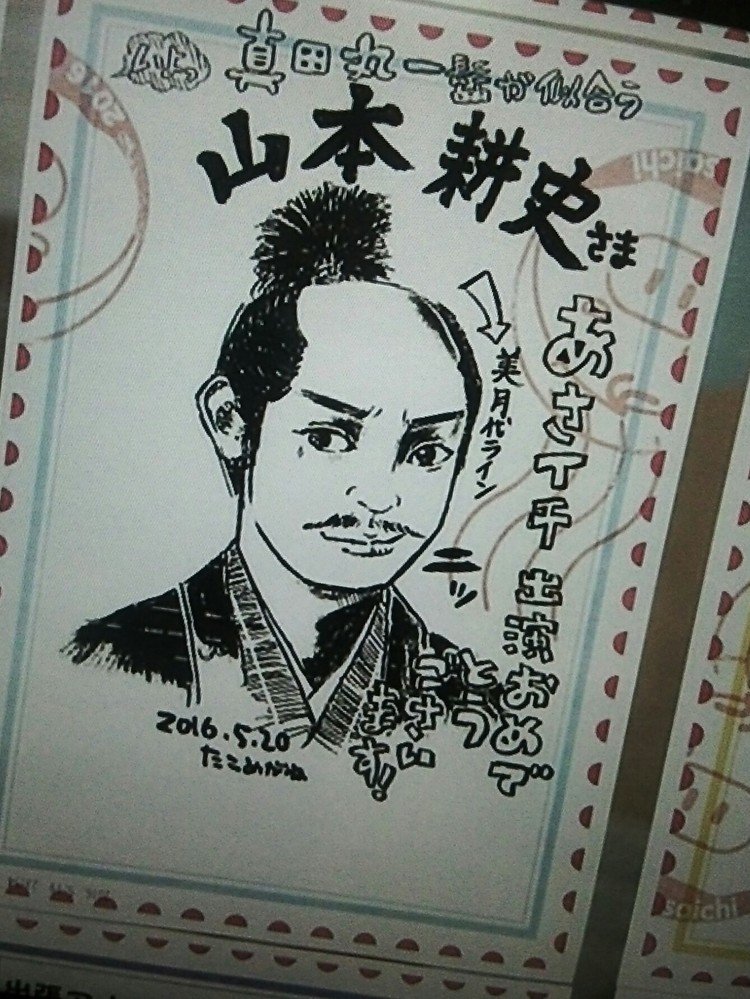 真田丸一髷が似合う
山本耕史さま
美月代ライン
ニッ
あさイチ出演おめで
とう
ござい
ます!
2016.5.20
たこめがね
2016
saichi
saichi